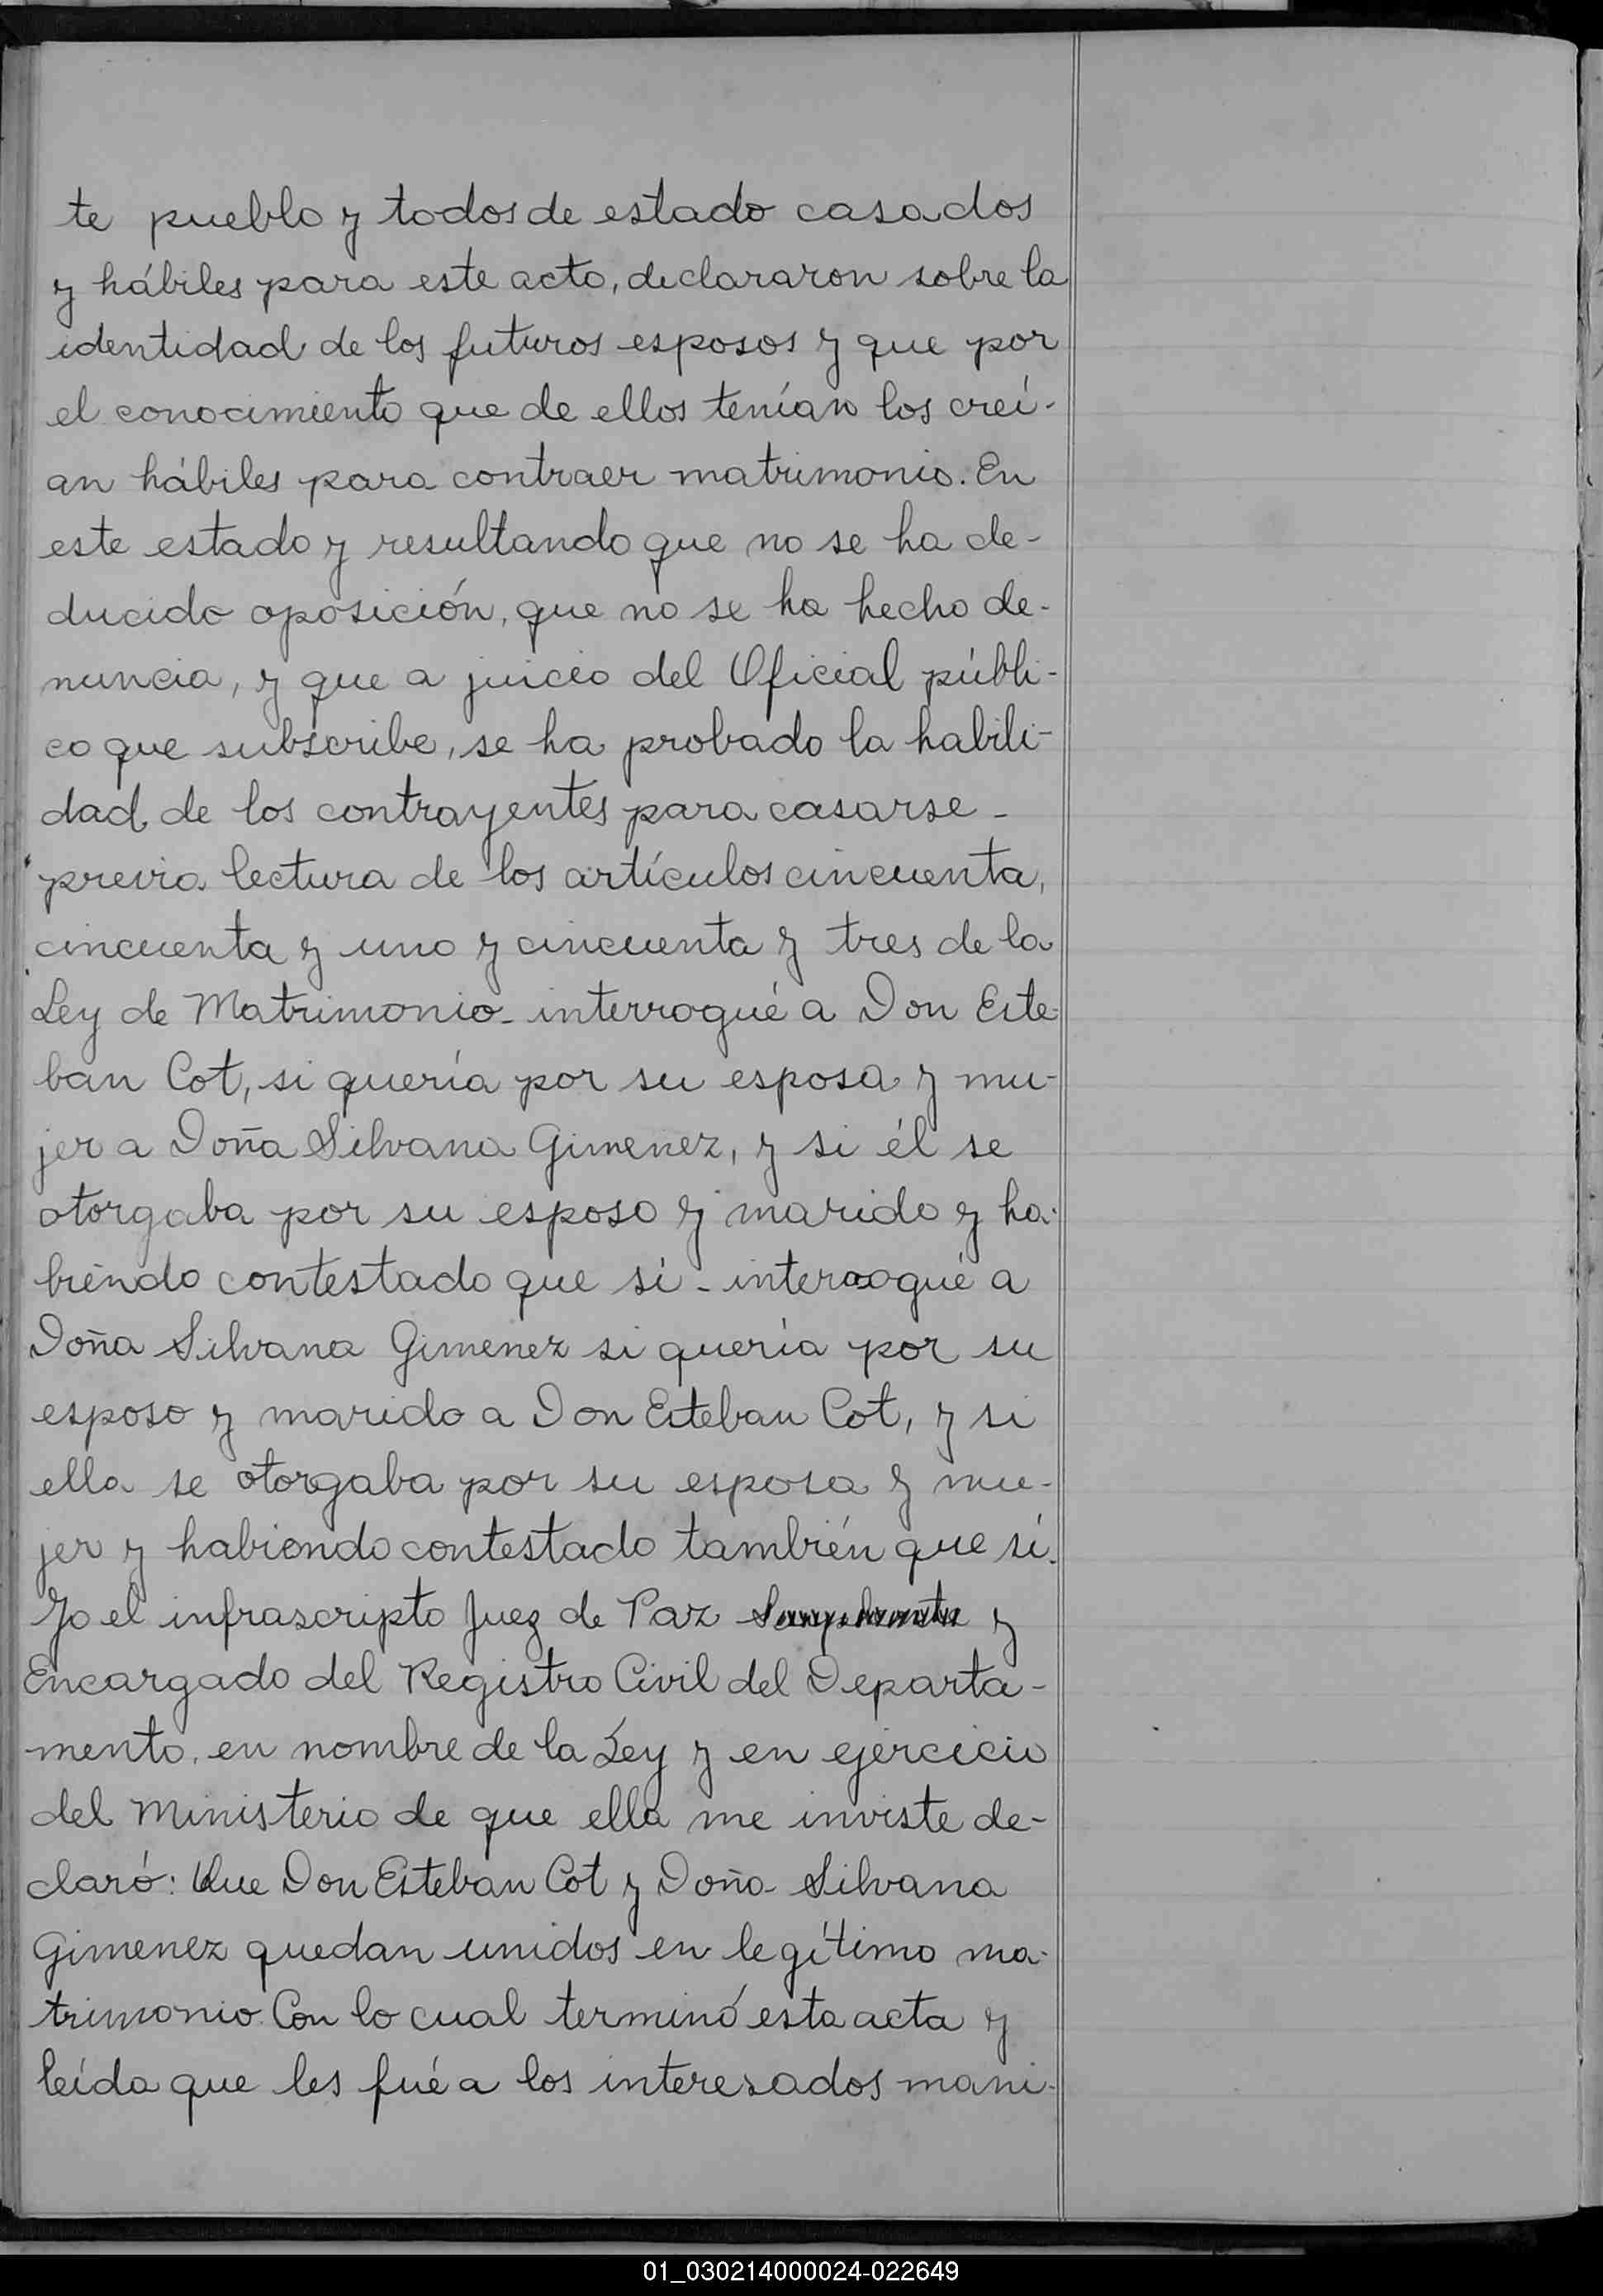 te pueblo y todos de estado casados
y hábiles para este acto, declararon sobre la
identidad de los futuros esposos y que por
el conocimiento que de ellos tenían los creí-
an hábiles para contraer matrimonio. En
este estado y resultando que no se ha de-
ducido oposición, que no se ha hecho de-
nuncia, y que a juicio del Oficial públi-
co que subscribe, se ha probado la habili-
dad de los contrayentes para casarse -
previa lectura de los artículos cincuenta,
cincuenta y uno y cincuenta y tres de la
Ley de Matrimonio - interrogué a Don Este-
ban Cot, si quería por su esposa y mu-
jer a Doña Silvana Gimenez, y si él se
otorgaba por su esposo y marido y ha-
biendo contestado que sí - interrogué a
Doña Silvana Gimenez si quería por su
esposo y marido a Don Esteban Cot, y si
ella se otorgaba por su esposa y mu-
jer y habiendo contestado también que sí.
Yo el infrascripto Juez de Paz y
Encargado del Registro Civil del Departa-
mento, en nombre de la Ley y en ejercicio
del Ministerio de que ella me inviste de-
claró: Que Don Esteban Cot y Doña Silvana
Gimenez quedan unidos en legítimo ma-
trimonio. Con lo cual terminó esta acta y
leída que les fué a los interesados mani-
01_030214000024-022649